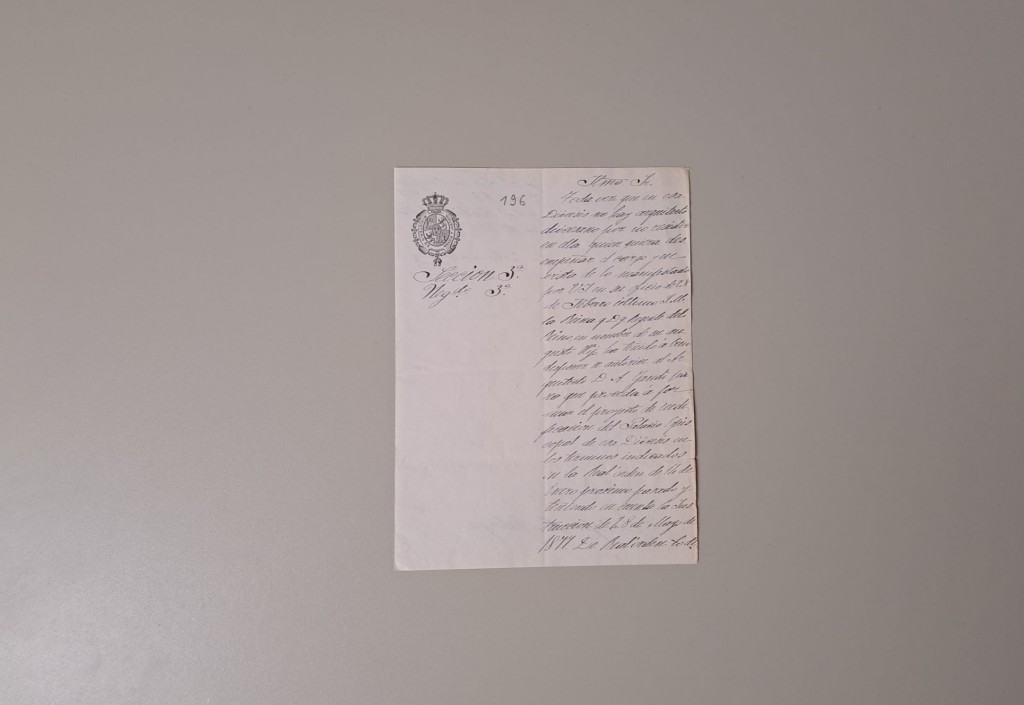 196
Seccion 3ª.
Neg.do 3º.
Ilmo Sr.
Toda vez que en esa
Diócesis no hay arquitecto
diocesano por no existir
en ella quien quiera des
empeñar el cargo y en
vista de lo manifestado
por V.I. en su oficio de 28
de Febrero último S.M.
la Reina q D g Regente del
Reino en nombre de su au
gusto Hijo ha tenido á bien
disponer se autorice al Ar
quitecto D. A. Gaudi pa
ra que proceda á for
mar el proyecto de reedi
ficacion del Palacio Epis
copal de esa Diócesis en
los terminos indicados
en la Real orden de
Enero proximo pasado y
teniendo en cuenta la Ins
truccion de 28 de Mayo de
1877. De Real orden lo di